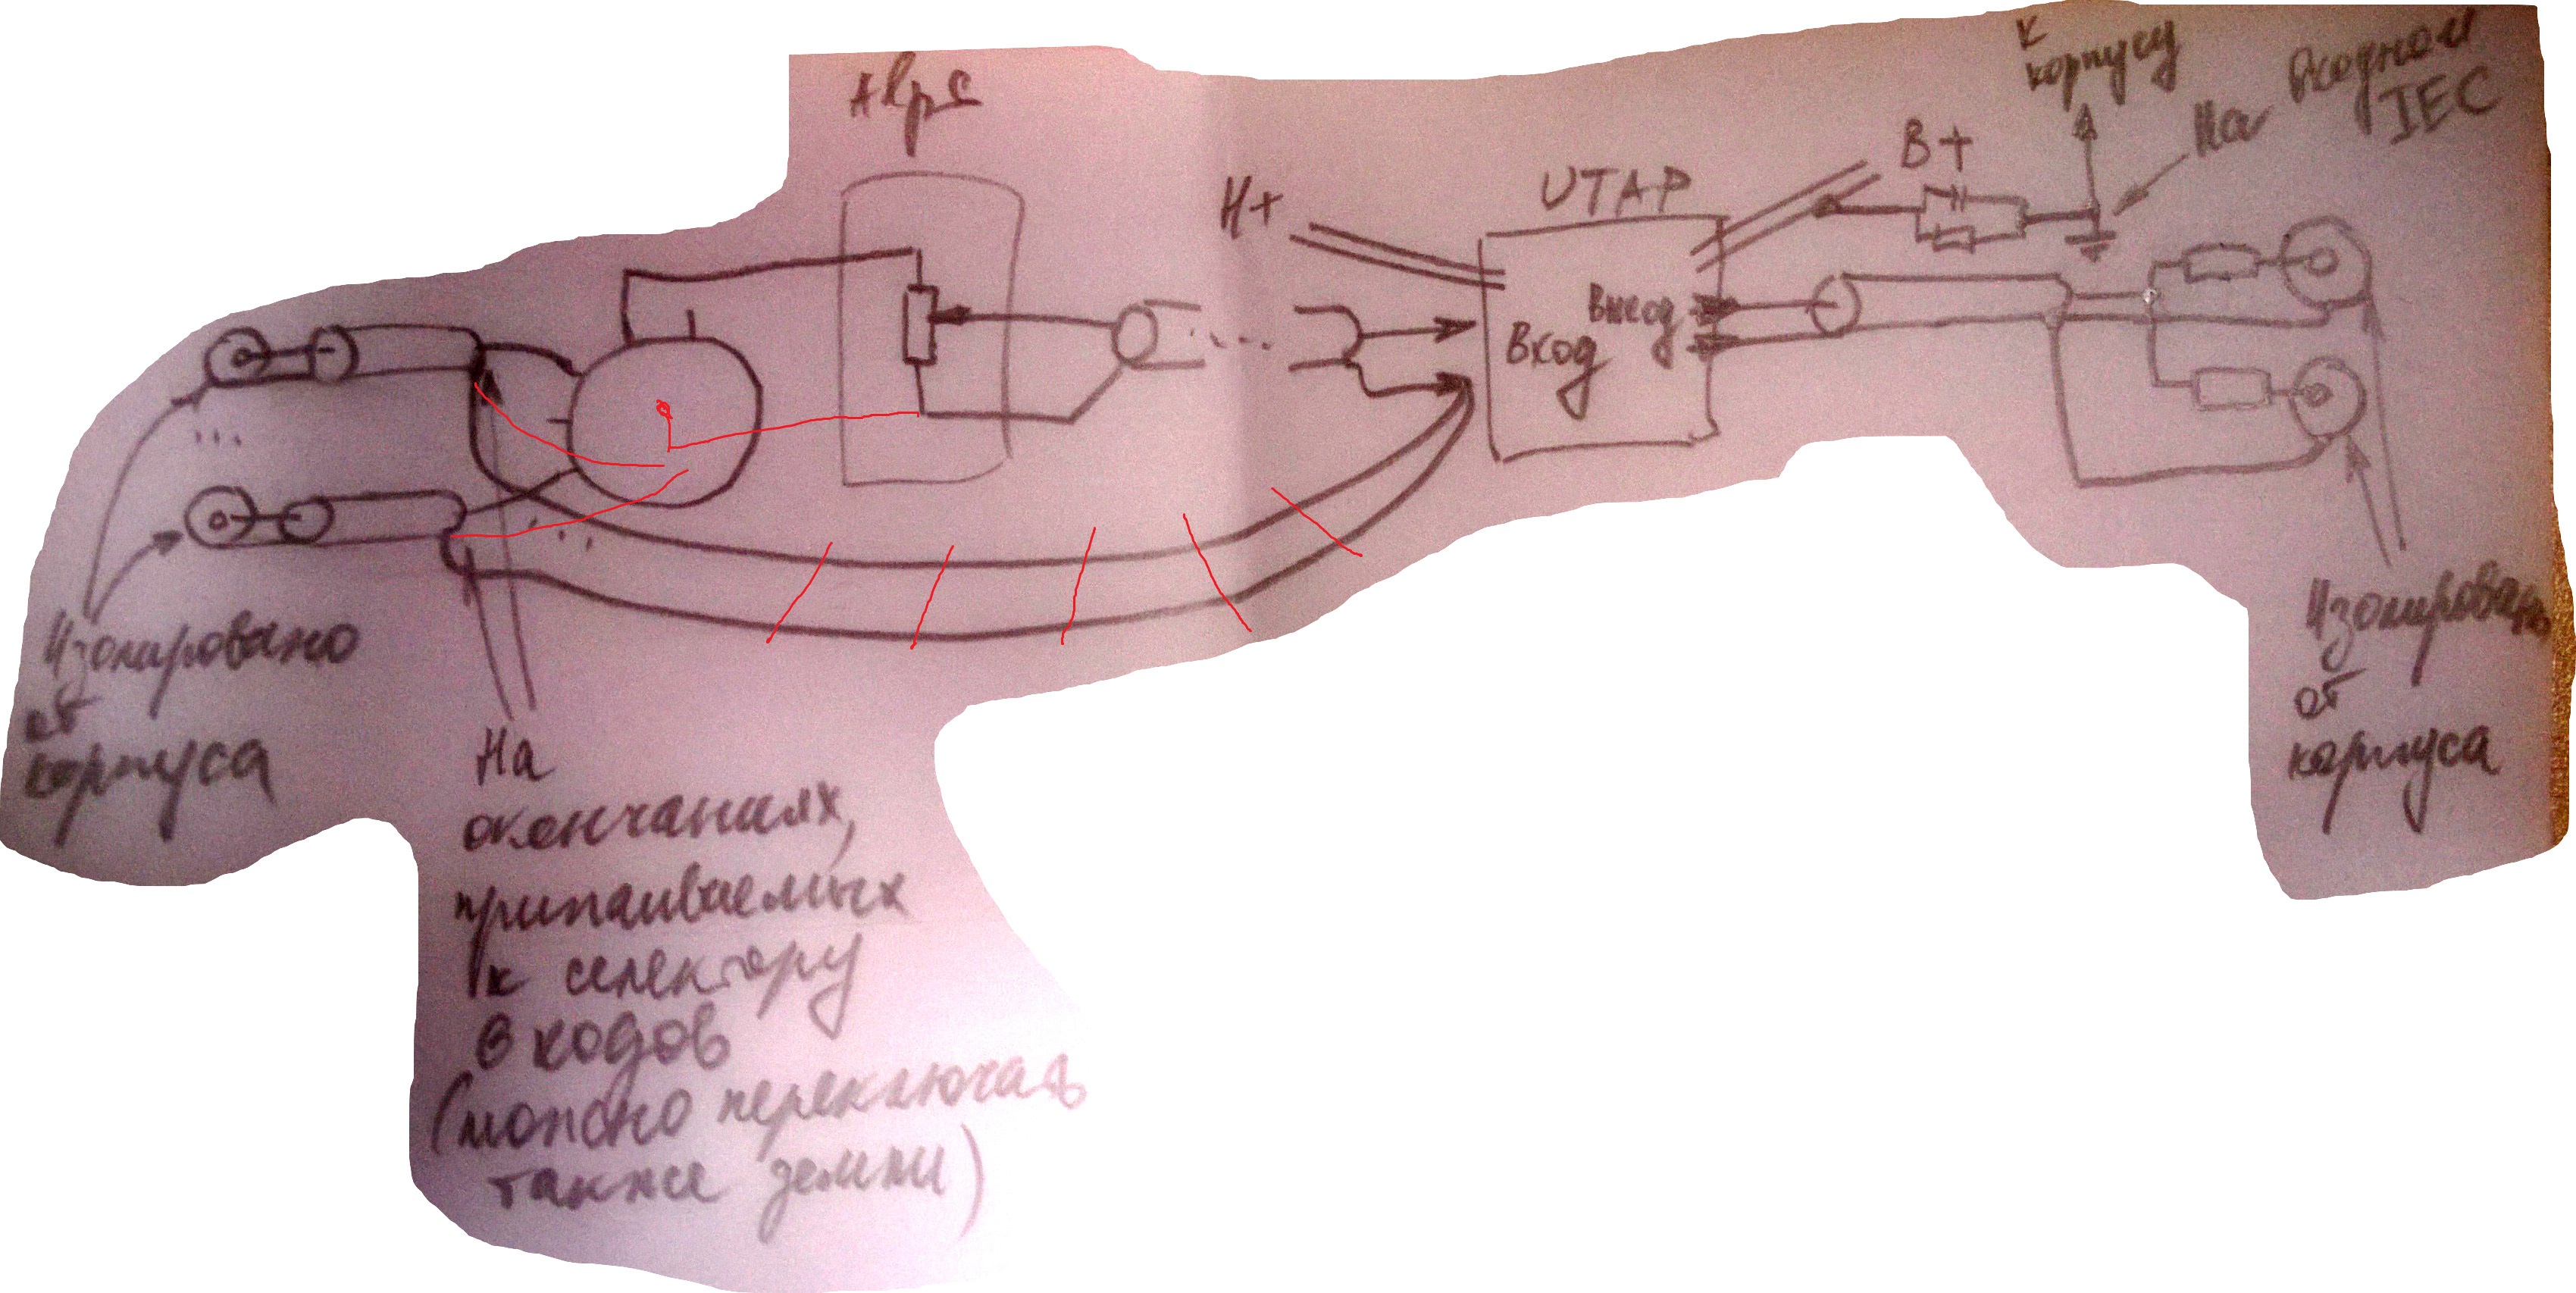 Alps
H+
UTAP
B+
к
корпусу
На входном
IEC
Вход
выход
Изолировано
от
корпуса
На
окончаниях,
припаиваемых
к селектору
входов
(можно переключать
также земли)
Изолировано
от
корпуса